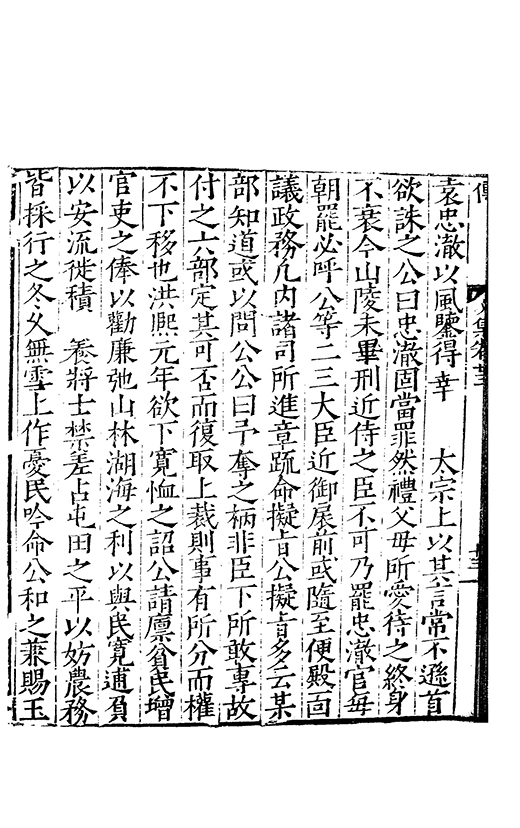 傳
文集卷廿三
袁忠澈以風鑒得幸　太宗上以其言常不遜首
欲誅之公曰忠澈固當罪然禮父母所愛待之終身
不衰今山陵未畢刑近侍之臣不可乃罷忠澈官每
朝罷必呼公等二三大臣近御扆前或隨至便殿面
議政務凡内諸司所進章疏命擬旨公擬旨多云某
部知道或以問公公曰予奪之柄非臣下所敢專故
付之六部定其可否而復取上裁則事有所分而權
不下移也洪熙元年欲下寬恤之詔公請廩貧民增
官吏之俸以勸廉弛山林湖海之利以與民寬逋負
以安流徙積　養將士禁差占屯田之平以妨農務
皆採行之冬久無雪上作憂民吟命公和之兼賜玉